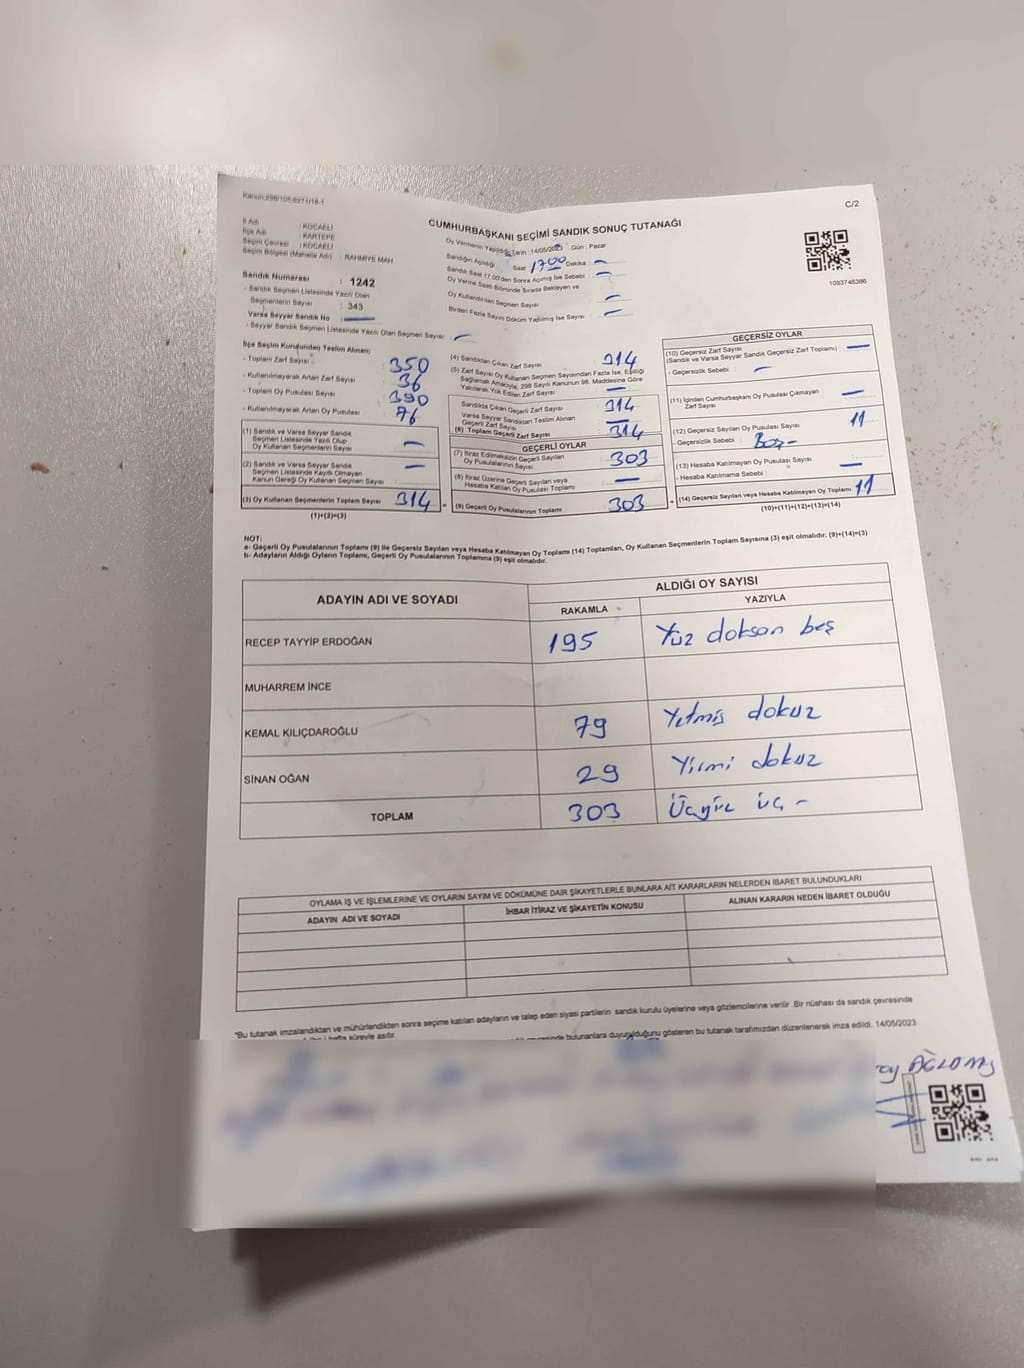 Kanun:298/105,6271/16-1
C/2
CUMHURBAŞKANI SEÇİMİ SANDIK SONUÇ TUTANAĞI
İl Adı : KOCAELİ
İlçe Adı : KARTEPE
Seçim Çevresi : KOCAELİ
Seçim Bölgesi (Mahalle Adı) : RAHMİYE MAH
Sandık Numarası : 1242
- Sandık Seçmen Listesinde Yazılı Olan
Seçmenlerin Sayısı : 343
Varsa Seyyar Sandık No : —
- Seyyar Sandık Seçmen Listesinde Yazılı Olan Seçmen Sayısı : —
Oy Vermenin Yapıldığı Tarih : 14/05/2023 Gün : Pazar
Sandığın Açıldığı Saat 17:00 Dakika : —
Sandık Saat 17.00'den Sonra Açılmış İse Sebebi : —
Oy Verme Saati Bitiminde Sırada Bekleyen ve
Oy Kullandırılan Seçmen Sayısı : —
Birden Fazla Sayım Döküm Yapılmış İse Sayısı : —
1093746386
İlçe Seçim Kurulundan Teslim Alınan;
- Toplam Zarf Sayısı : 350
- Kullanılmayarak Artan Zarf Sayısı : 36
- Toplam Oy Pusulası Sayısı : 390
- Kullanılmayarak Artan Oy Pusulası : 76
(1) Sandık ve Varsa Seyyar Sandık
Seçmen Listesinde Yazılı Olup
Oy Kullanan Seçmenlerin Sayısı : —
(2) Sandık ve Varsa Seyyar Sandık
Seçmen Listesinde Kayıtlı Olmayan
Kanun Gereği Oy Kullanan Seçmen Sayısı : —
(3) Oy Kullanan Seçmenlerin Toplam Sayısı 314
(1)+(2)=(3)
(4) Sandıktan Çıkan Zarf Sayısı : 314
(5) Zarf Sayısı Oy Kullanan Seçmen Sayısından Fazla İse, Eşitliği
Sağlamak Amacıyla, 298 Sayılı Kanunun 98. Maddesine Göre
Yakılarak Yok Edilen Zarf Sayısı : —
Sandıkta Çıkan Geçerli Zarf Sayısı : 314
Varsa Seyyar Sandıktan Teslim Alınan
Geçerli Zarf Sayısı : —
(6) Toplam Geçerli Zarf Sayısı : 314
GEÇERLİ OYLAR
(7) İtiraz Edilmeksizin Geçerli Sayılan
Oy Pusulalarının Sayısı : 303
(8) İtiraz Üzerine Geçerli Sayılan veya
Hesaba Katılan Oy Pusulası Toplamı : —
(9) Geçerli Oy Pusulalarının Toplamı : 303
GEÇERSİZ OYLAR
(10) Geçersiz Zarf Sayısı
(Sandık ve Varsa Seyyar Sandık Geçersiz Zarf Toplamı) : —
- Geçersizlik Sebebi : —
(11) İçinden Cumhurbaşkanı Oy Pusulası Çıkmayan
Zarf Sayısı : —
(12) Geçersiz Sayılan Oy Pusulası Sayısı : 11
- Geçersizlik Sebebi : Boş-
(13) Hesaba Katılmayan Oy Pusulası Sayısı : —
- Hesaba Katılmama Sebebi :
(14) Geçersiz Sayılan veya Hesaba Katılmayan Oy Toplamı : 11
(10)+(11)+(12)+(13)=(14)
NOT:
a- Geçerli Oy Pusulalarının Toplamı (9) ile Geçersiz Sayılan veya Hesaba Katılmayan Oy Toplamı (14) Toplamları, Oy Kullanan Seçmenlerin Toplam Sayısına (3) eşit olmalıdır. (9)+(14)=(3)
b- Adayların Aldığı Oyların Toplamı, Geçerli Oy Pusulalarının Toplamına (9) eşit olmalıdır.
ADAYIN ADI VE SOYADI
ALDIĞI OY SAYISI
RAKAMLA YAZIYLA
RECEP TAYYİP ERDOĞAN 195 Yüz doksan beş
MUHARREM İNCE
KEMAL KILIÇDAROĞLU 79 Yetmiş dokuz
SİNAN OĞAN 29 Yirmi dokuz
TOPLAM 303 Üçyüz üç -
OYLAMA İŞ VE İŞLEMLERİNE VE OYLARIN SAYIM VE DÖKÜMÜNE DAİR ŞİKAYETLERLE BUNLARA AİT KARARLARIN NELERDEN İBARET BULUNDUKLARI
ADAYIN ADI VE SOYADI İHBAR İTİRAZ VE ŞİKAYETİN KONUSU ALINAN KARARIN NEDEN İBARET OLDUĞU
*Bu tutanak imzalandıktan ve mühürlendikten sonra seçime katılan adayların ve talep eden siyasi partilerin sandık kurulu üyelerine veya gözlemcilerine verilir .Bir nüshası da sandık çevresinde
hafta süreyle asılır. bulunanlara duyurulduğunu gösteren bu tutanak tarafımızdan düzenlenerek imza edildi. 14/05/2023